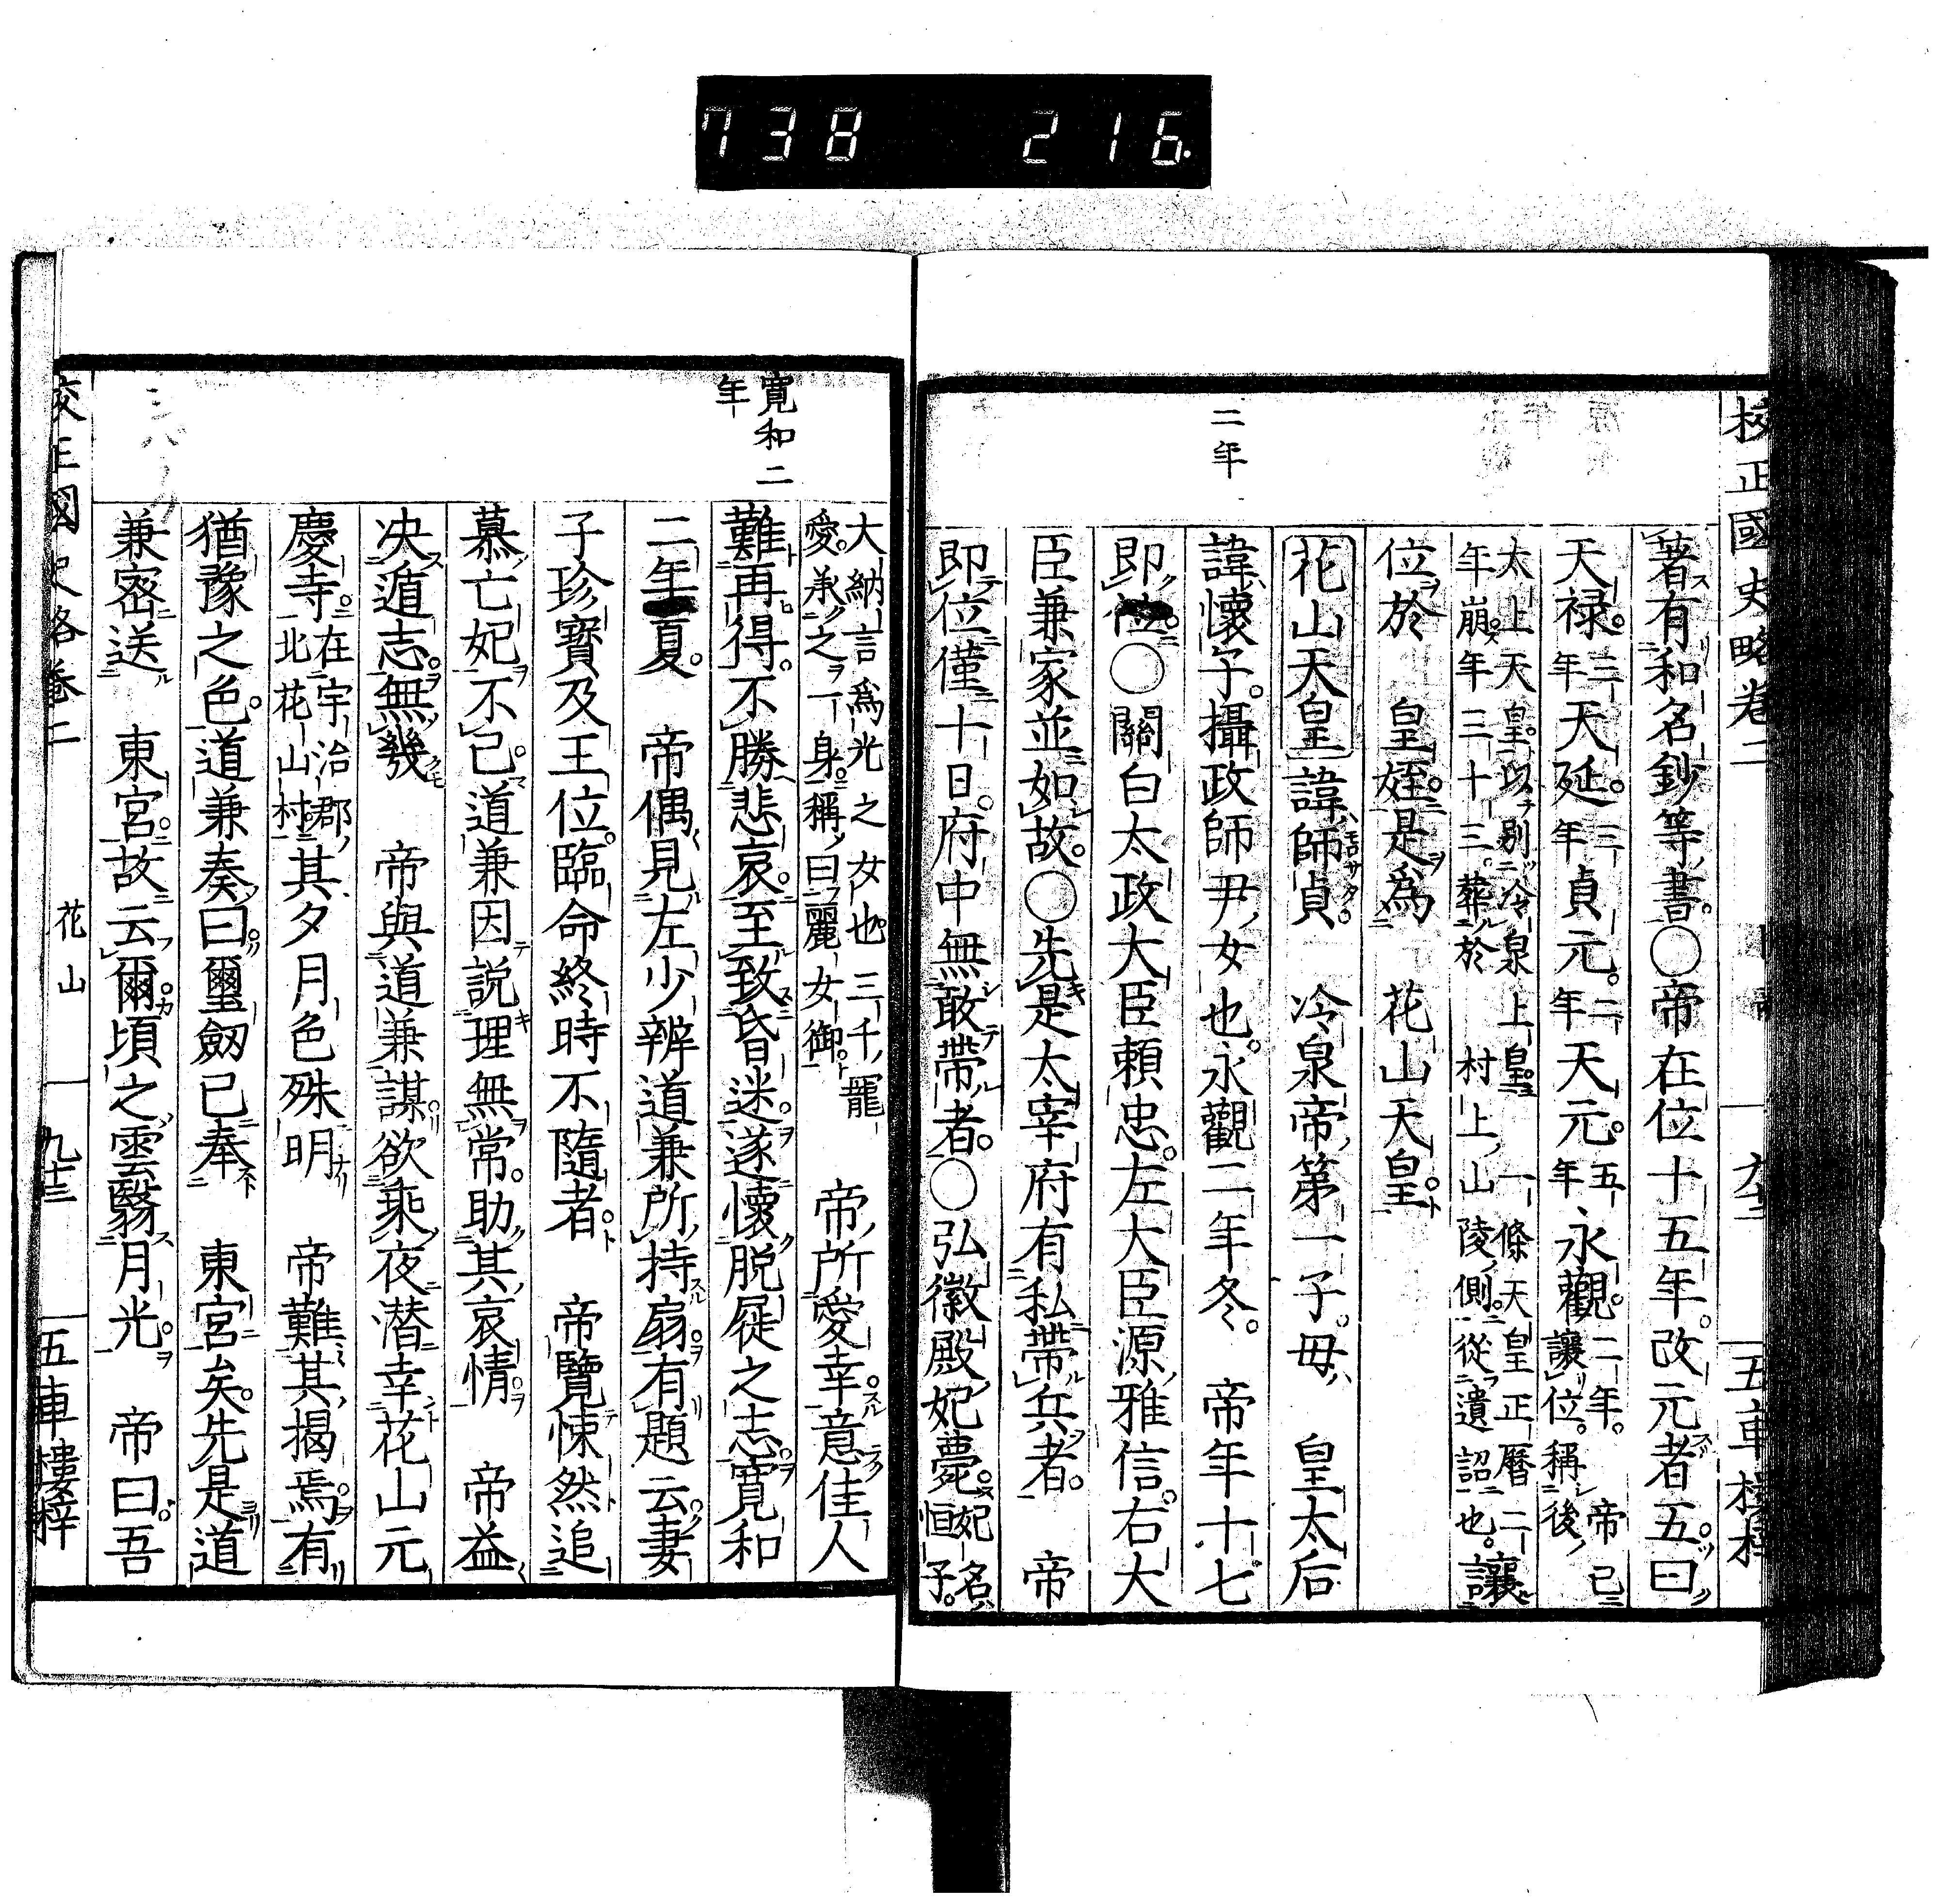 738 216
校正國史略卷二
五車樓梓
著有和名鈔等書○帝在位十五年改元者五曰
天禄二年天延三年貞元二年天元五年永觀二年讓位稱後帝已
太上天皇以別冷泉上皇一條天皇正曆二
年崩年三十三葬於村上山陵側從遺詔也讓
位於皇姪是爲花山天皇
花山天皇諱師貞冷泉帝第一子母皇太后
諱懷子攝政師尹女也永觀二年冬帝年十七
二年
即位○關白太政大臣頼忠左大臣源雅信右大
臣兼家並如故○先是太宰府有私帶兵者帝
即位僅十日府中無敢帶者○弘徽殿妃薨妃名恒子
大納言爲光之女也三千寵
愛承之一身稱曰麗女御帝所愛幸意佳人
寛和二年
難再得不勝悲哀至致昏迷遂懷脱屣之志寛和
二年夏帝偶見左少辨道兼所持扇有題云妻
子珍寳及王位臨命終時不隨者帝覽悚然追
慕亡妃不已道兼因説理無常助其哀情帝益
决遁志無幾帝與道兼謀欲乘夜潜幸花山元
慶寺在宇治郡北花山村其夕月色殊明帝難其揭焉有
猶豫之色道兼奏曰璽劔已奉東宮矣先是道
兼密送東宮故云爾頃之雲翳月光帝曰吾
校正國史略卷二
花山
九十三
五車樓梓